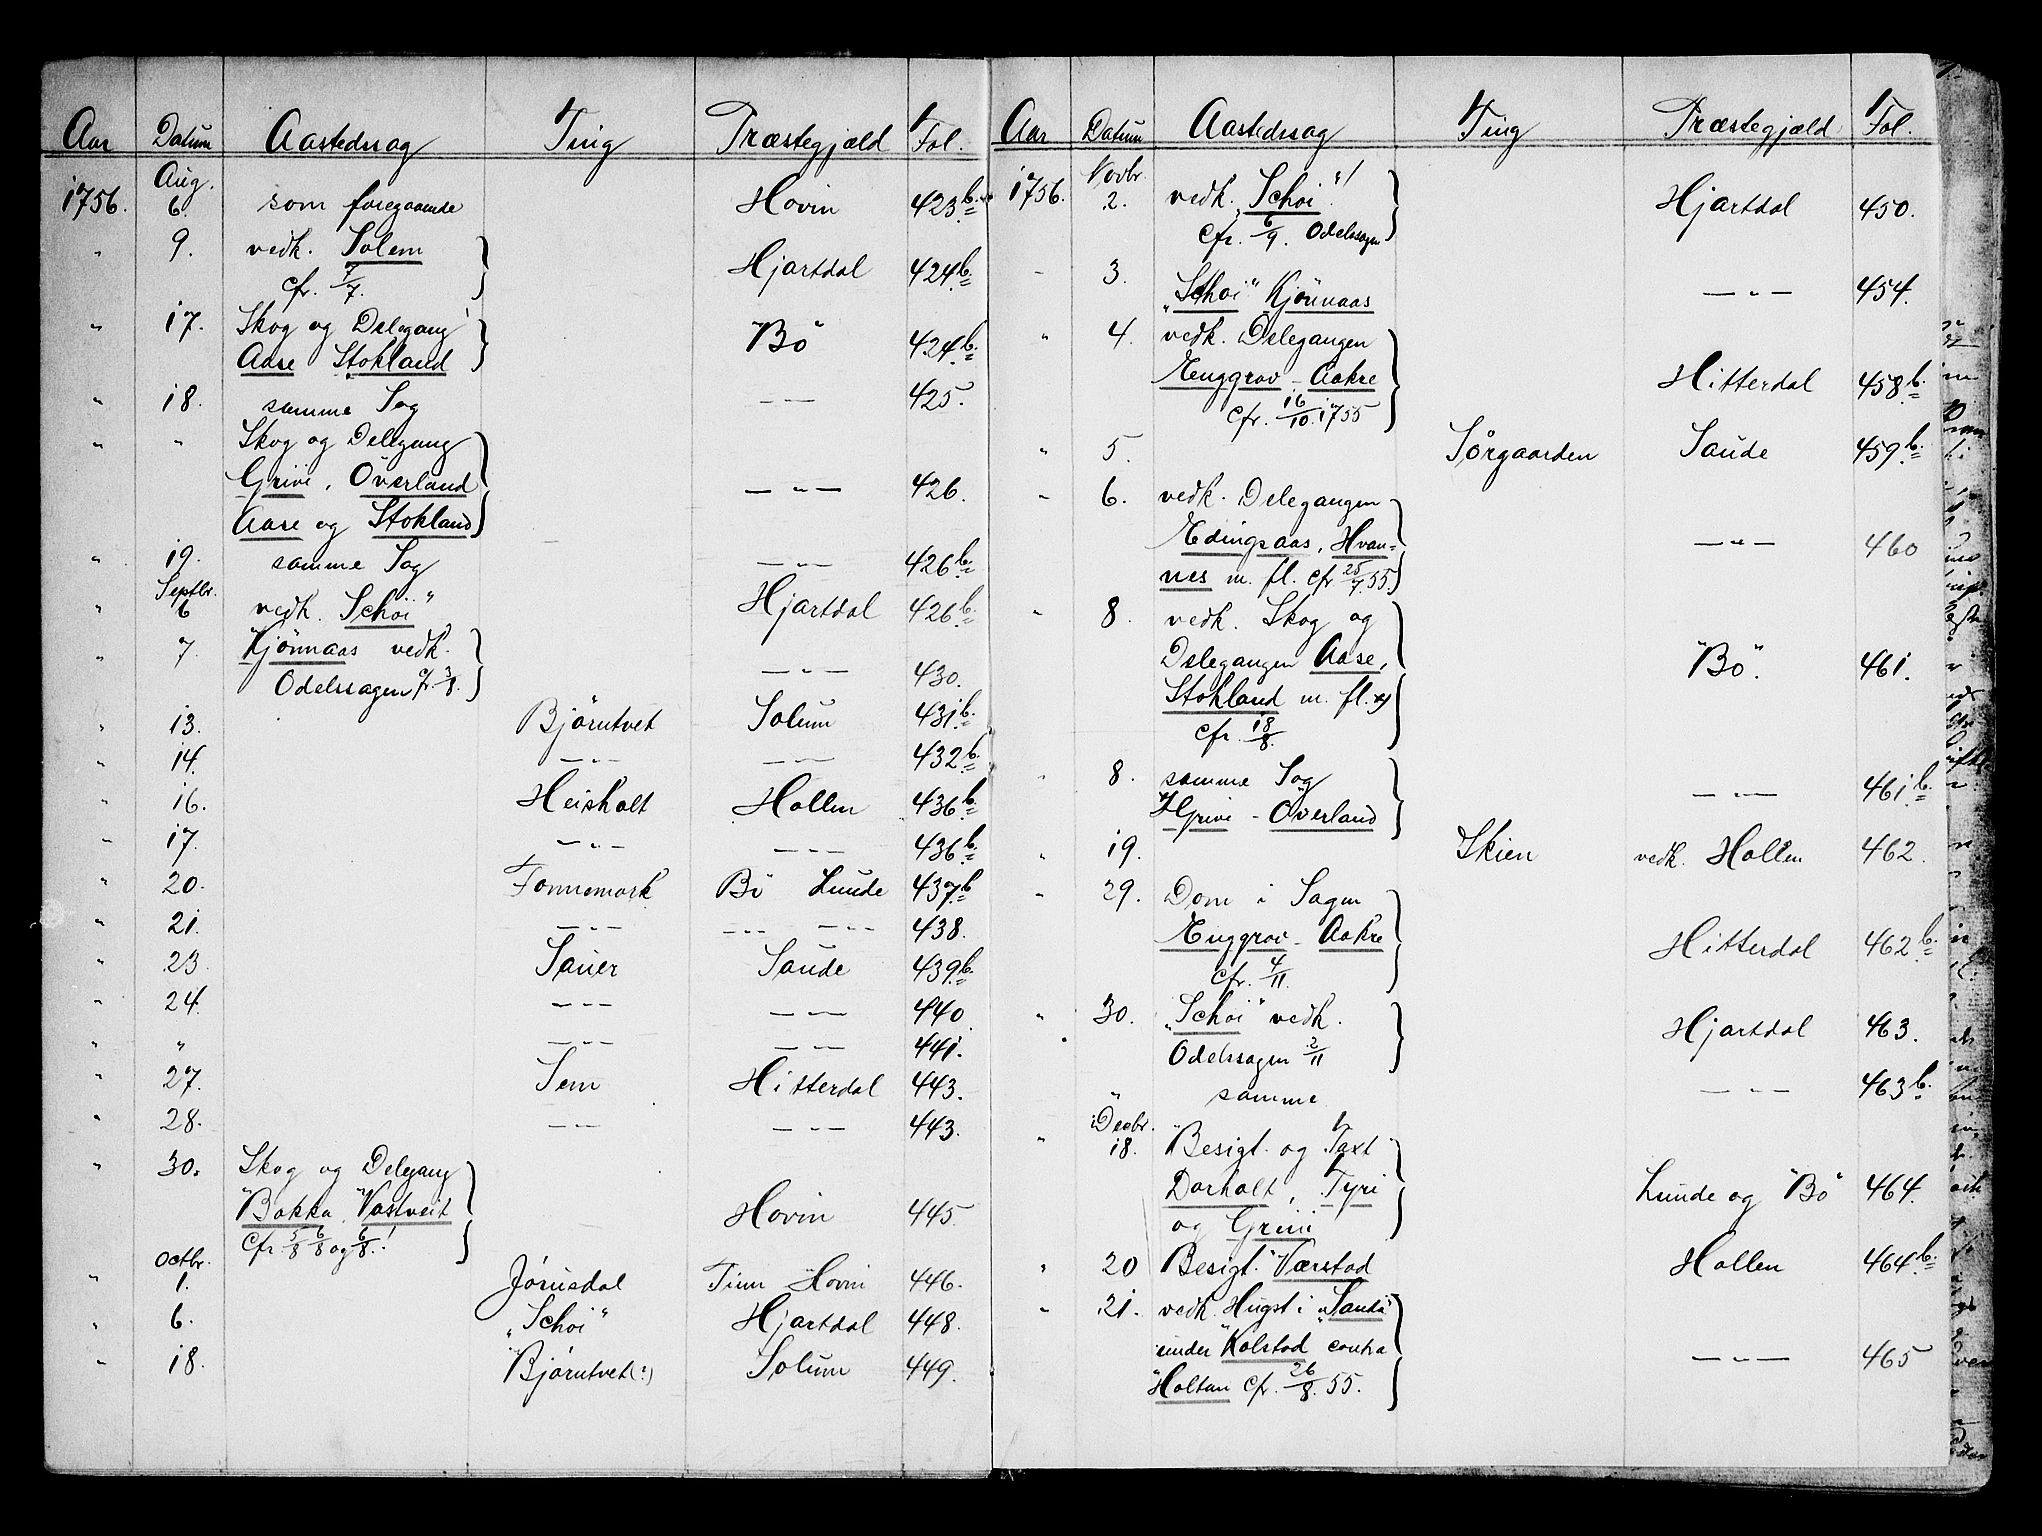 Aar Datum Aastedssag Ting Præstegjæld Fol.
Aug.
1756. 6. som foregaaende Hovin 423 b.
" 9. vedk. Solem
cfr. 7/7. Hjartdal 424 b.
" 17. Skog og Delegang
Aase Stokland "Bö" 424 b.
" 18. samme Sag — — 425.
" " Skog og Delegang
Grivi, Överland — " — 426.
Aase og Stokland
" 19. samme Sag — " — 426 b.
Septbr.
" 6 vedk. "Schöi" Hjartdal 426 b.
" 7. Kjönnaas vedk.
Odelssagen cfr. 3/8. — " — 430.
" 13. Björntvet Solum 431 b.
" 14. — " — — " — 432 b.
" 16. Heisholt Hollen 436 b.
" 17. — " — — " — 436 b.
" 20. Fonnemork Bö Lunde 437 b
" 21. — " — — " — — " — 438.
" 23. Sauer Saude 439 b.
" 24. — " — — " — 440.
" " — " — — " — 441.
" 27. Sem Hitterdal 443.
" 28. — " — — " — 443.
" 30. Skog og Delegang
"Bakka, Vastveit
cfr. 5/8 6/8 og 6/8.! Hovin 445.
Octbr.
" 1. Jönsdal Tinn Hovin 446.
" 6. "Schöi" Hjartdal 448.
" 18. Björntvet (?) Solum 449.
Aar Datum Aastedssag Ting Præstegjæld Fol.
Novbr.
1756. 2. vedk. "Schöi"! Hjartdal 450.
cfr. 6/9. Odelssagen
" 3. "Schöi" Kjönnaas — " — 454.
" 4. vedk. Delegangen
Enggrav - Aakre Hitterdal 458 b.
cfr. 16/10. 1755
" 5. Sörgaarden Saude 459 b.
" 6. vedk. Delegangen
Edingsaas, Hvan- — " — 460
nes m. fl. cfr 25/7. 55.
" 8. vedk. Skog og
Delegangen Aase, "Bö". 461.
Stokland m. fl. x)
cfr. 18/8.
" 8. samme Sag — " — 461 b.
x Grivi - Överland
" 19. Skien vedk. Hollen 462.
" 29. Dom i Sagen
Enggrav - Aakre Hitterdal 462 b.
cfr. 4/11.
" 30. "Schöi" vedk. Hjartdal 463.
Odelssagen 2/11
" samme — " — 463 b.
Decbr.
" 18. Besigt. og Taxt
Dorholt, Tyri Lunde og "Bö" 464.
og Grini
" 20 Besigt. "Værstad Hollen 464 b.
" 21. vedk. Hugst i "Sanda"
under "Kolstad contra — " — 465
"Holtan cfr. 26/8. 55.